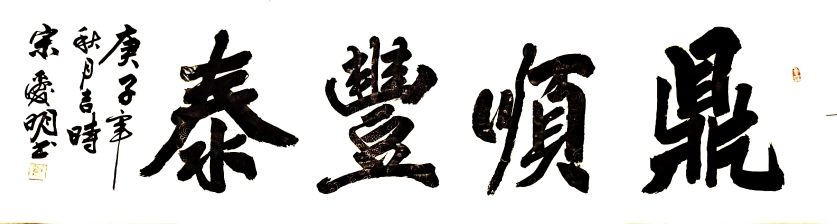 鼎順豐泰
庚子年
秋月吉時
宗愛明书